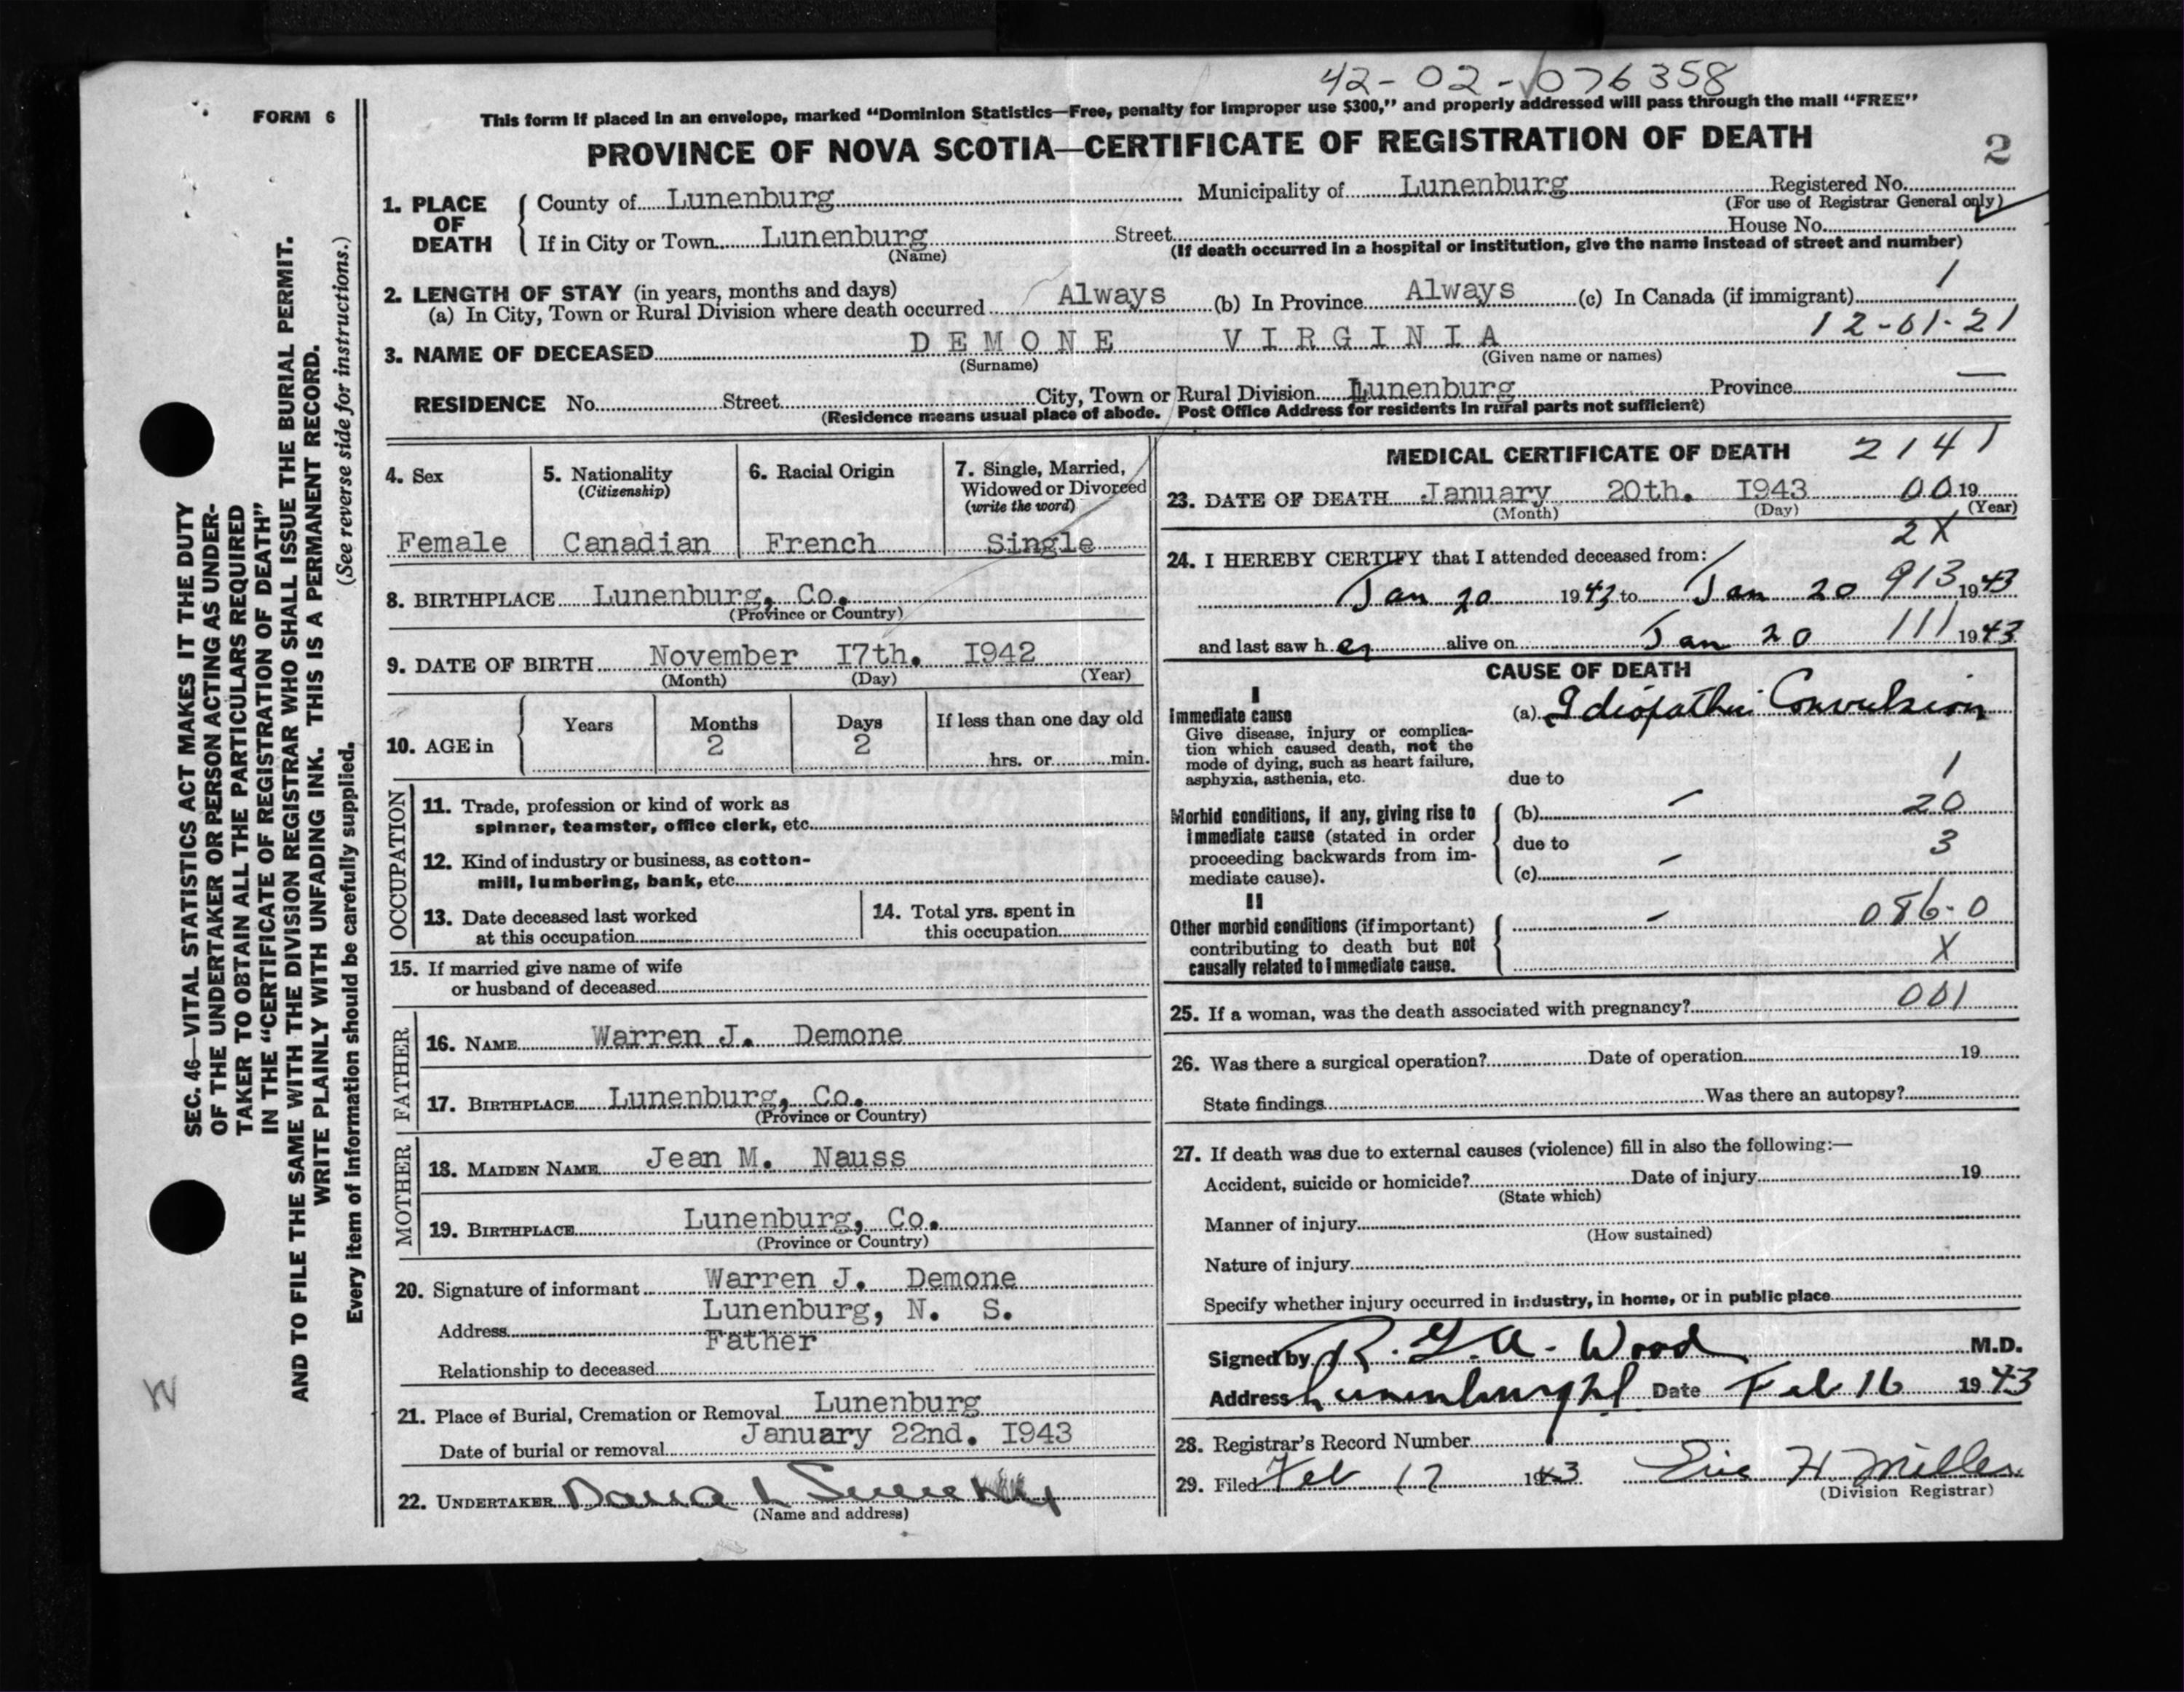 42-02-076358
FORM 6
This form if placed in an envelope, marked "Dominion Statistics—Free, penalty for improper use $300," and properly addressed will pass through the mail "FREE"
PROVINCE OF NOVA SCOTIA—CERTIFICATE OF REGISTRATION OF DEATH
2
1. PLACE OF DEATH
County of Lunenburg Municipality of Lunenburg Registered No.
(For use of Registrar General only)
If in City or Town Lunenburg Street House No.
(Name) (If death occurred in a hospital or institution, give the name instead of street and number)
2. LENGTH OF STAY (in years, months and days)
(a) In City, Town or Rural Division where death occurred Always (b) In Province Always (c) In Canada (if immigrant) 1
12-01-21
3. NAME OF DECEASED DEMONE VIRGINIA
(Surname) (Given name or names)
RESIDENCE No. Street City, Town or Rural Division Lunenburg Province —
(Residence means usual place of abode. Post Office Address for residents in rural parts not sufficient)
4. Sex
Female
5. Nationality
(Citizenship)
Canadian
6. Racial Origin
French
7. Single, Married,
Widowed or Divorced
(write the word)
Single
8. BIRTHPLACE Lunenburg, Co.
(Province or Country)
9. DATE OF BIRTH November I7th. I942
(Month) (Day) (Year)
10. AGE in
Years Months Days If less than one day old
2 2 hrs. or min.
OCCUPATION
11. Trade, profession or kind of work as
spinner, teamster, office clerk, etc.
12. Kind of industry or business, as cotton-
mill, lumbering, bank, etc.
13. Date deceased last worked
at this occupation
14. Total yrs. spent in
this occupation
15. If married give name of wife
or husband of deceased
FATHER
16. NAME Warren J. Demone
17. BIRTHPLACE Lunenburg, Co.
(Province or Country)
MOTHER
18. MAIDEN NAME Jean M. Nauss
19. BIRTHPLACE Lunenburg, Co.
(Province or Country)
20. Signature of informant Warren J. Demone
Lunenburg, N. S.
Address
Father
Relationship to deceased
21. Place of Burial, Cremation or Removal Lunenburg
January 22nd. I943
Date of burial or removal
22. UNDERTAKER
(Name and address)
MEDICAL CERTIFICATE OF DEATH 2141
23. DATE OF DEATH January 20th. I943 00 19
(Month) (Day) (Year)
2X
24. I HEREBY CERTIFY that I attended deceased from:
Jan 20 1943 to Jan 20 913 1943
and last saw her alive on Jan 20 111 1943
CAUSE OF DEATH
I
Immediate cause
Give disease, injury or complica-
tion which caused death, not the
mode of dying, such as heart failure,
asphyxia, asthenia, etc.
(a) Idiopathic Convulsion
due to 1
Morbid conditions, if any, giving rise to
immediate cause (stated in order
proceeding backwards from im-
mediate cause).
(b) — 20
due to 3
(c) —
II
Other morbid conditions (if important)
contributing to death but not
causally related to immediate cause.
— 086-0
X
001
25. If a woman, was the death associated with pregnancy?
26. Was there a surgical operation? Date of operation 19
State findings Was there an autopsy?
27. If death was due to external causes (violence) fill in also the following:—
Accident, suicide or homicide? Date of injury 19
(State which)
Manner of injury
(How sustained)
Nature of injury
Specify whether injury occurred in industry, in home, or in public place
Signed by R. G. A. Wood M.D.
Address Date Feb 16 1943
28. Registrar's Record Number
29. Filed Feb 17 1943 H. Miller
(Division Registrar)
SEC. 46—VITAL STATISTICS ACT MAKES IT THE DUTY
OF THE UNDERTAKER OR PERSON ACTING AS UNDER-
TAKER TO OBTAIN ALL THE PARTICULARS REQUIRED
IN THE "CERTIFICATE OF REGISTRATION OF DEATH"
AND TO FILE THE SAME WITH THE DIVISION REGISTRAR WHO SHALL ISSUE THE BURIAL PERMIT.
WRITE PLAINLY WITH UNFADING INK. THIS IS A PERMANENT RECORD.
(See reverse side for instructions.)
Every item of information should be carefully supplied.